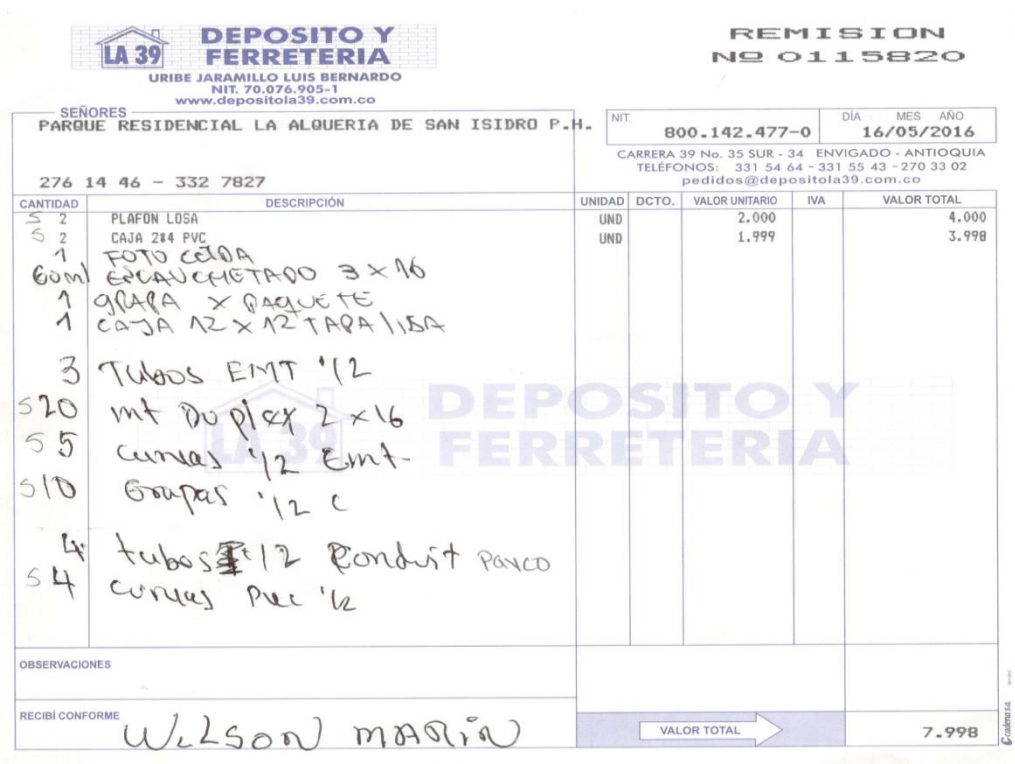 LA 39
DEPOSITO Y
FERRETERIA
URIBE JARAMILLO LUIS BERNARDO
NIT. 70.076.905-1
www.depositola39.com.co
REMISION
Nº 0115820
SEÑORES
PARQUE RESIDENCIAL LA ALQUERIA DE SAN ISIDRO P.H.
276 14 46 - 332 7827
NIT. 800.142.477-0
DÍA MES AÑO
16/05/2016
CARRERA 39 No. 35 SUR - 34 ENVIGADO - ANTIOQUIA
TELÉFONOS: 331 54 64 - 331 55 43 - 270 33 02
pedidos@depositola39.com.co
CANTIDAD DESCRIPCIÓN UNIDAD DCTO. VALOR UNITARIO IVA VALOR TOTAL
S 2 PLAFON LOSA UND 2.000 4.000
S 2 CAJA 2X4 PVC UND 1.999 3.998
1 FOTO CELDA
60ml ENCAUCHETADO 3 x 16
1 GRAPA X PAQUETE
1 CAJA 12 X 12 TAPA LISA
3 Tubos EMT 1/2
S 20 mt Duplex 2 x 16
S 5 Curvas 1/2 Emt-
S 10 Grapas 1/2 C
4 tubos 1/2 Conduit PAVCO
S 4 Curvas Pvc 1/2
LA 39
DEPOSITO Y
FERRETERIA
OBSERVACIONES
RECIBÍ CONFORME
WILSON MARIN
VALOR TOTAL 7.998
Cadena s.a